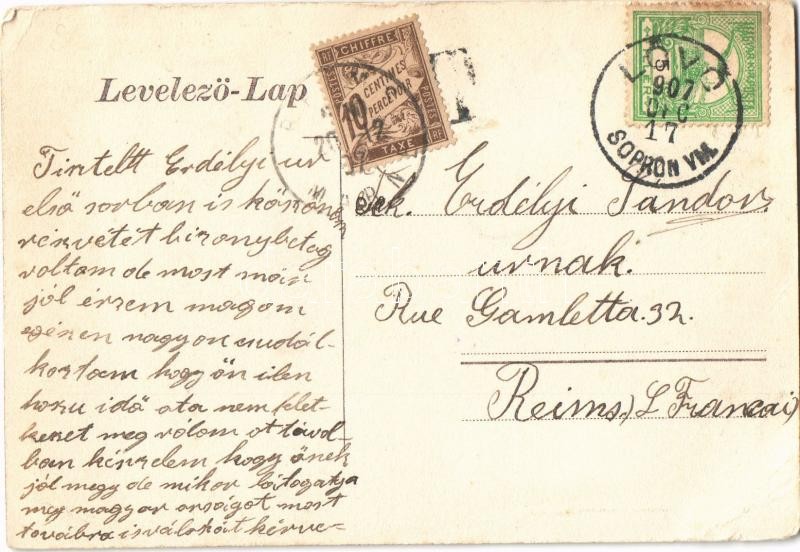 Levelező-Lap
CHIFFRE
10
CENTIMES
A PERCEVOIR
POSTES
TAXE
RF
T
LÖVŐ
907
DEC
17
SOPRON VM.
Tisztelt Erdélyi ur
első sorban is köszönöm
részvétét bizony beteg
voltam de most már
jól érzem magam
egészen nagyon csudál-
koztam hogy ön ilen
hozu idő ota nem felet-
kezet meg rólam ot távol-
ban képzelem hogy önek
jól megy de mikor látogatja
meg magyar országot most
továbra is válaszát kérve-
Erdélyi Sándor
urnak.
Rue Gambletta. 32.
Reims, (Francai)